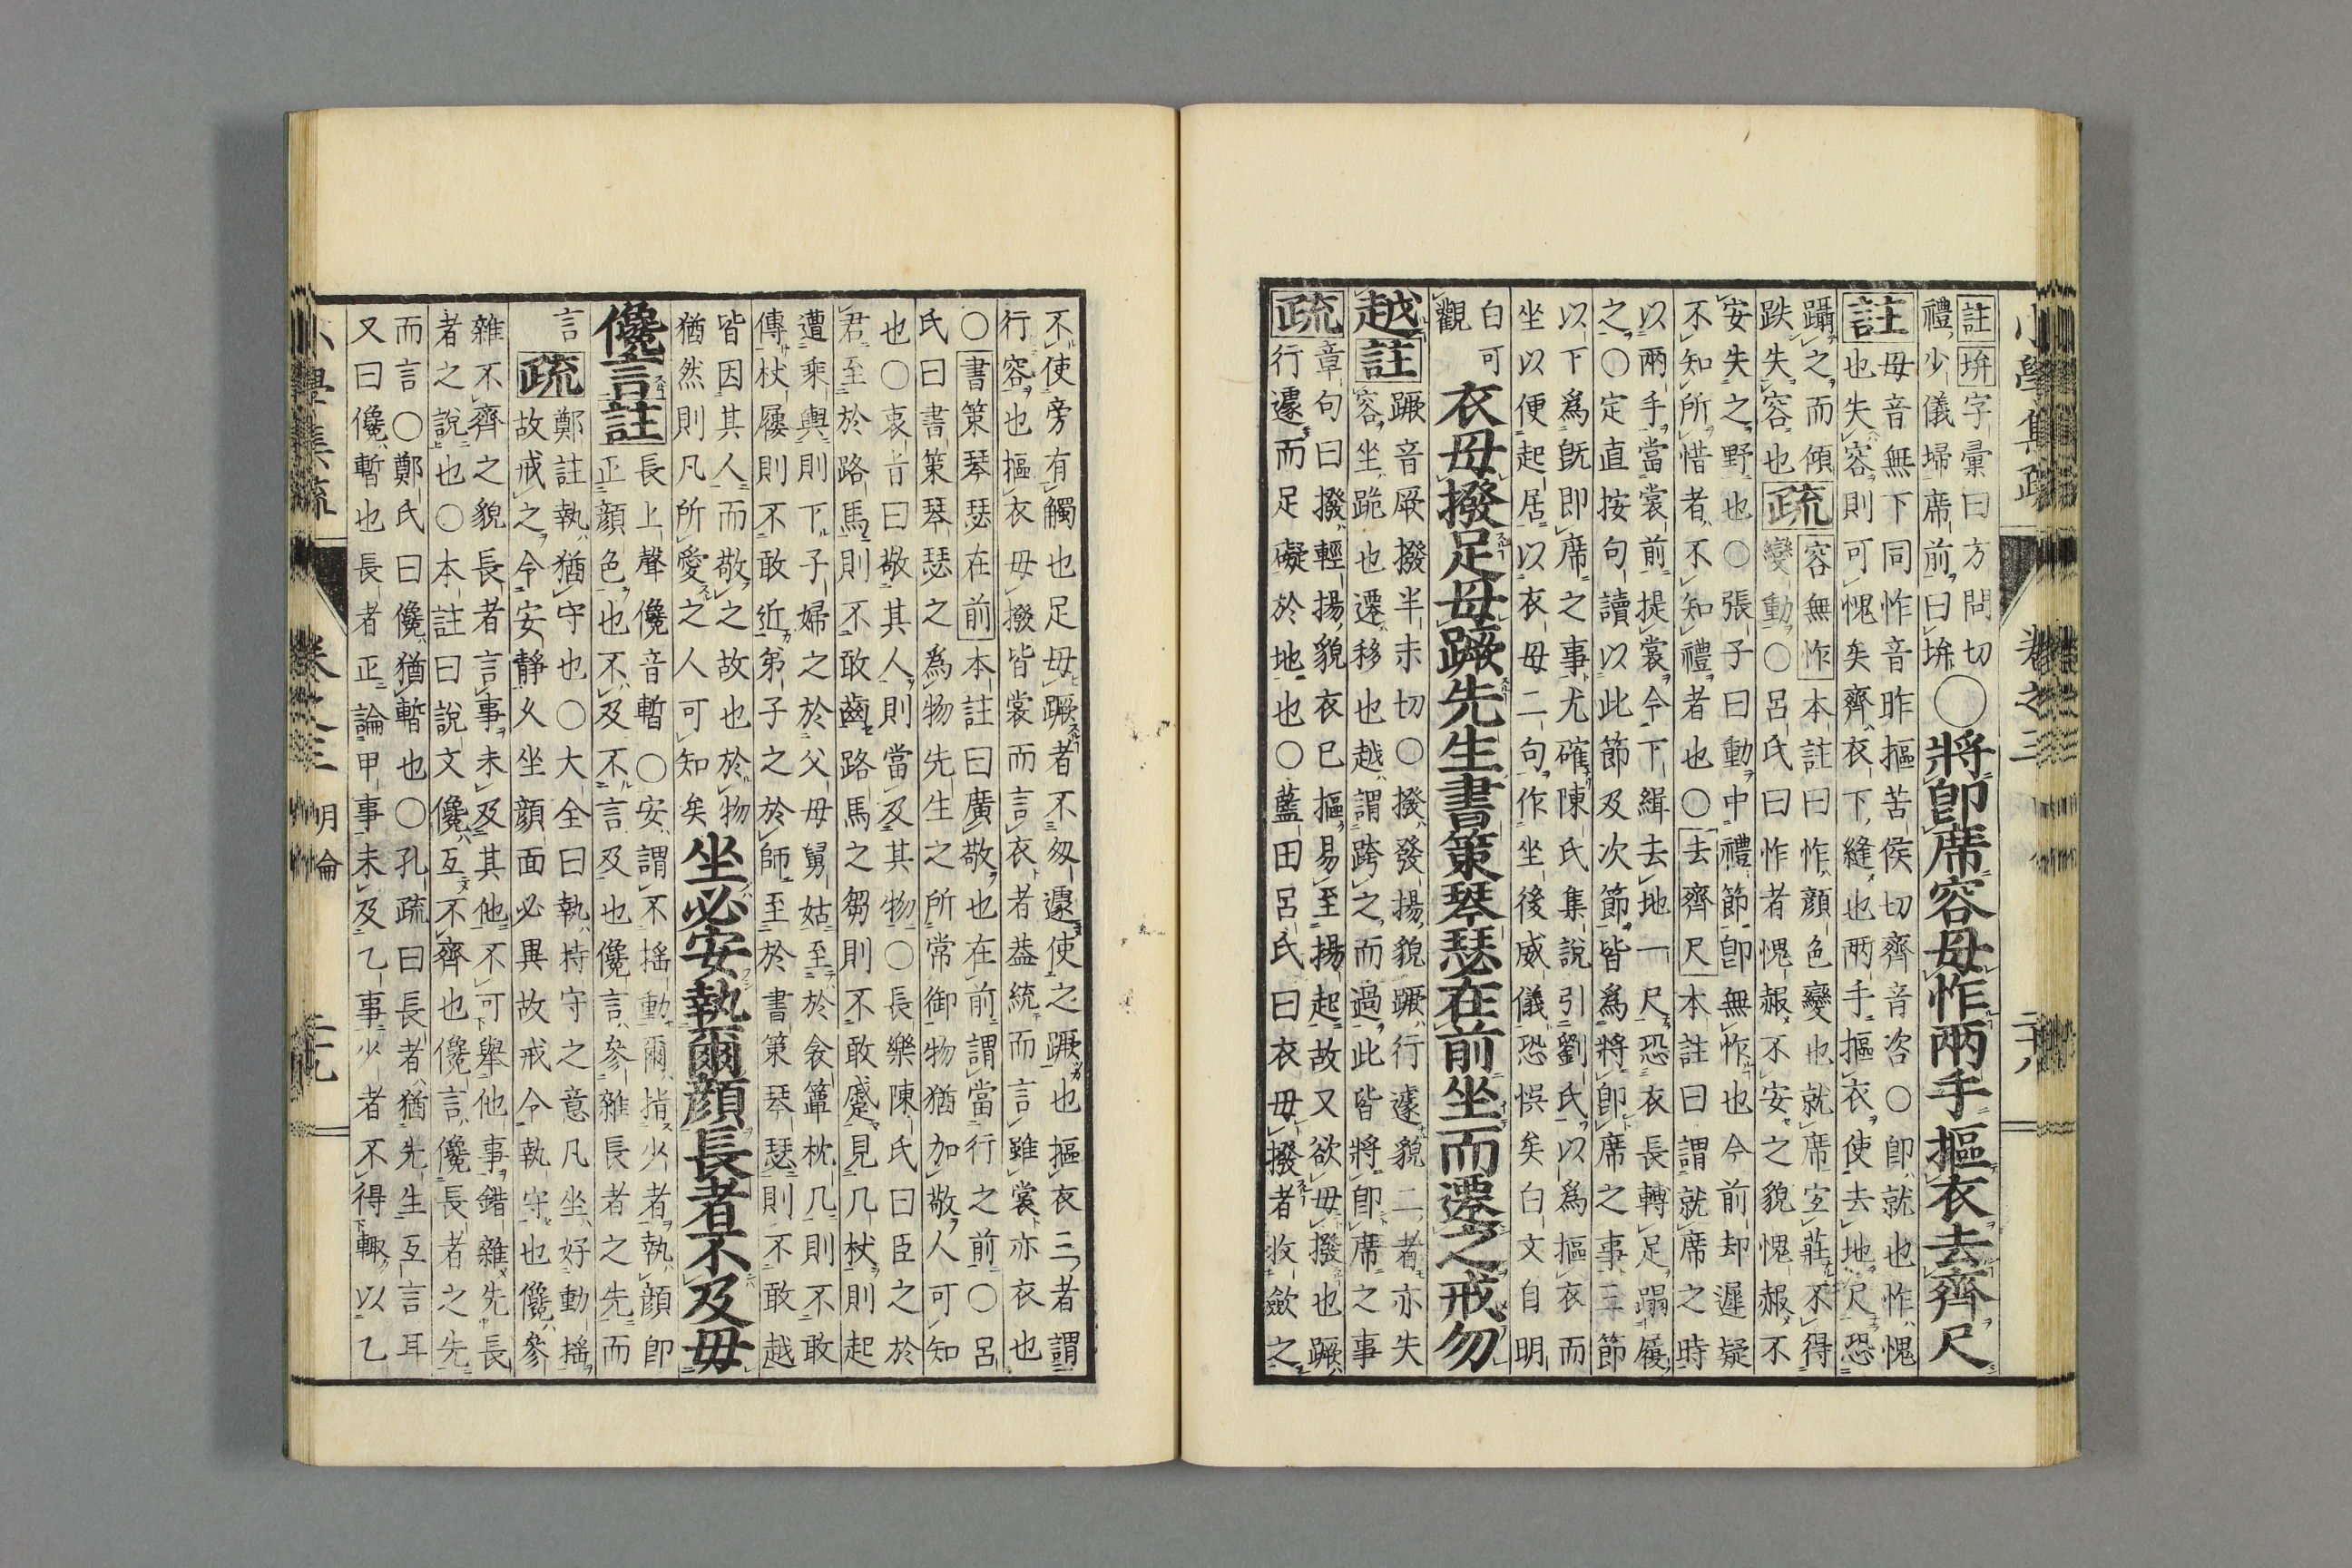 小學集疏
卷之三
二十八
註 㧋字彙曰方問切
禮少儀埽席前曰㧋
○將卽席容毋怍兩手摳衣去齊尺
註
毋音無下同怍音昨摳苦侯切齊音咨○卽就也怍愧
也失容則可愧矣齊衣下縫也兩手摳衣使去地尺恐
躡之而傾
跌失容也
疏
容無怍本註曰怍顔色變也就席宜莊不得
變動○呂氏曰怍者愧赧不安之貌愧赧不
安失之野也○張子曰動中禮節卽無怍也今前却遲疑
不知所惜者不知禮者也○去齊尺本註曰謂就席之時
以兩手當裳前提裳令下緝去地一尺恐衣長轉足蹋履
之○定直按句讀以此節及次節皆爲將卽席之事三節
以下爲旣卽席之事尤確陳氏集說引劉氏以爲摳衣而
坐以便起居以衣毋二句作坐後威儀恐悞矣白文自明
白可
觀
衣毋撥足毋蹶先生書策琴瑟在前坐而遷之戒勿
越
註
蹶音厥撥半末切○撥發揚貌蹶行遽貌二者亦失
容坐跪也遷移也越謂跨之而過此皆將卽席之事
疏
章句曰撥輕揚貌衣已摳易至揚起故又欲毋撥也蹶
行遽而足礙於地也○藍田呂氏曰衣毋撥者收斂之
不使旁有觸也足毋蹶者不匆遽使之蹶也摳衣三者謂
行容也摳衣毋撥皆裳而言衣者葢統而言雖裳亦衣也
○書策琴瑟在前本註曰廣敬也在前謂當行之前○呂
氏曰書策琴瑟之為物先生之所常御物猶加敬人可知
也○哀旹曰敬其人則當及其物○長樂陳氏曰臣之於
君至於路馬則不敢齒路馬之芻則不敢蹙見几杖則起
遭乘輿則下子婦之於父母舅姑至於衾簟枕几則不敢
傳杖屨則不敢近弟子之於師至於書策琴瑟則不敢越
皆因其人而敬之故也於物
猶然則凡所愛之人可知矣
坐必安執爾顔長者不及毋
儳言
註
長上聲儳音暫○安謂不揺動爾指少者執顔卽
正顔色也不及不言及也儳言參雜長者之先而
言
疏
鄭註執猶守也○大全曰執持守之意凡坐好動揺
故戒之令安靜久坐顔面必異故戒令執守也儳參
雜不齊之貌長者言事未及其他不可舉他事錯雜先長
者之說也○本註曰說文儳互不齊也儳言儳長者之先
而言○鄭氏曰儳猶暫也○孔疏曰長者猶先生互言耳
又曰儳暫也長者正論甲事未及乙事少者不得輙以乙
小學集疏
卷之三
明倫
二十九